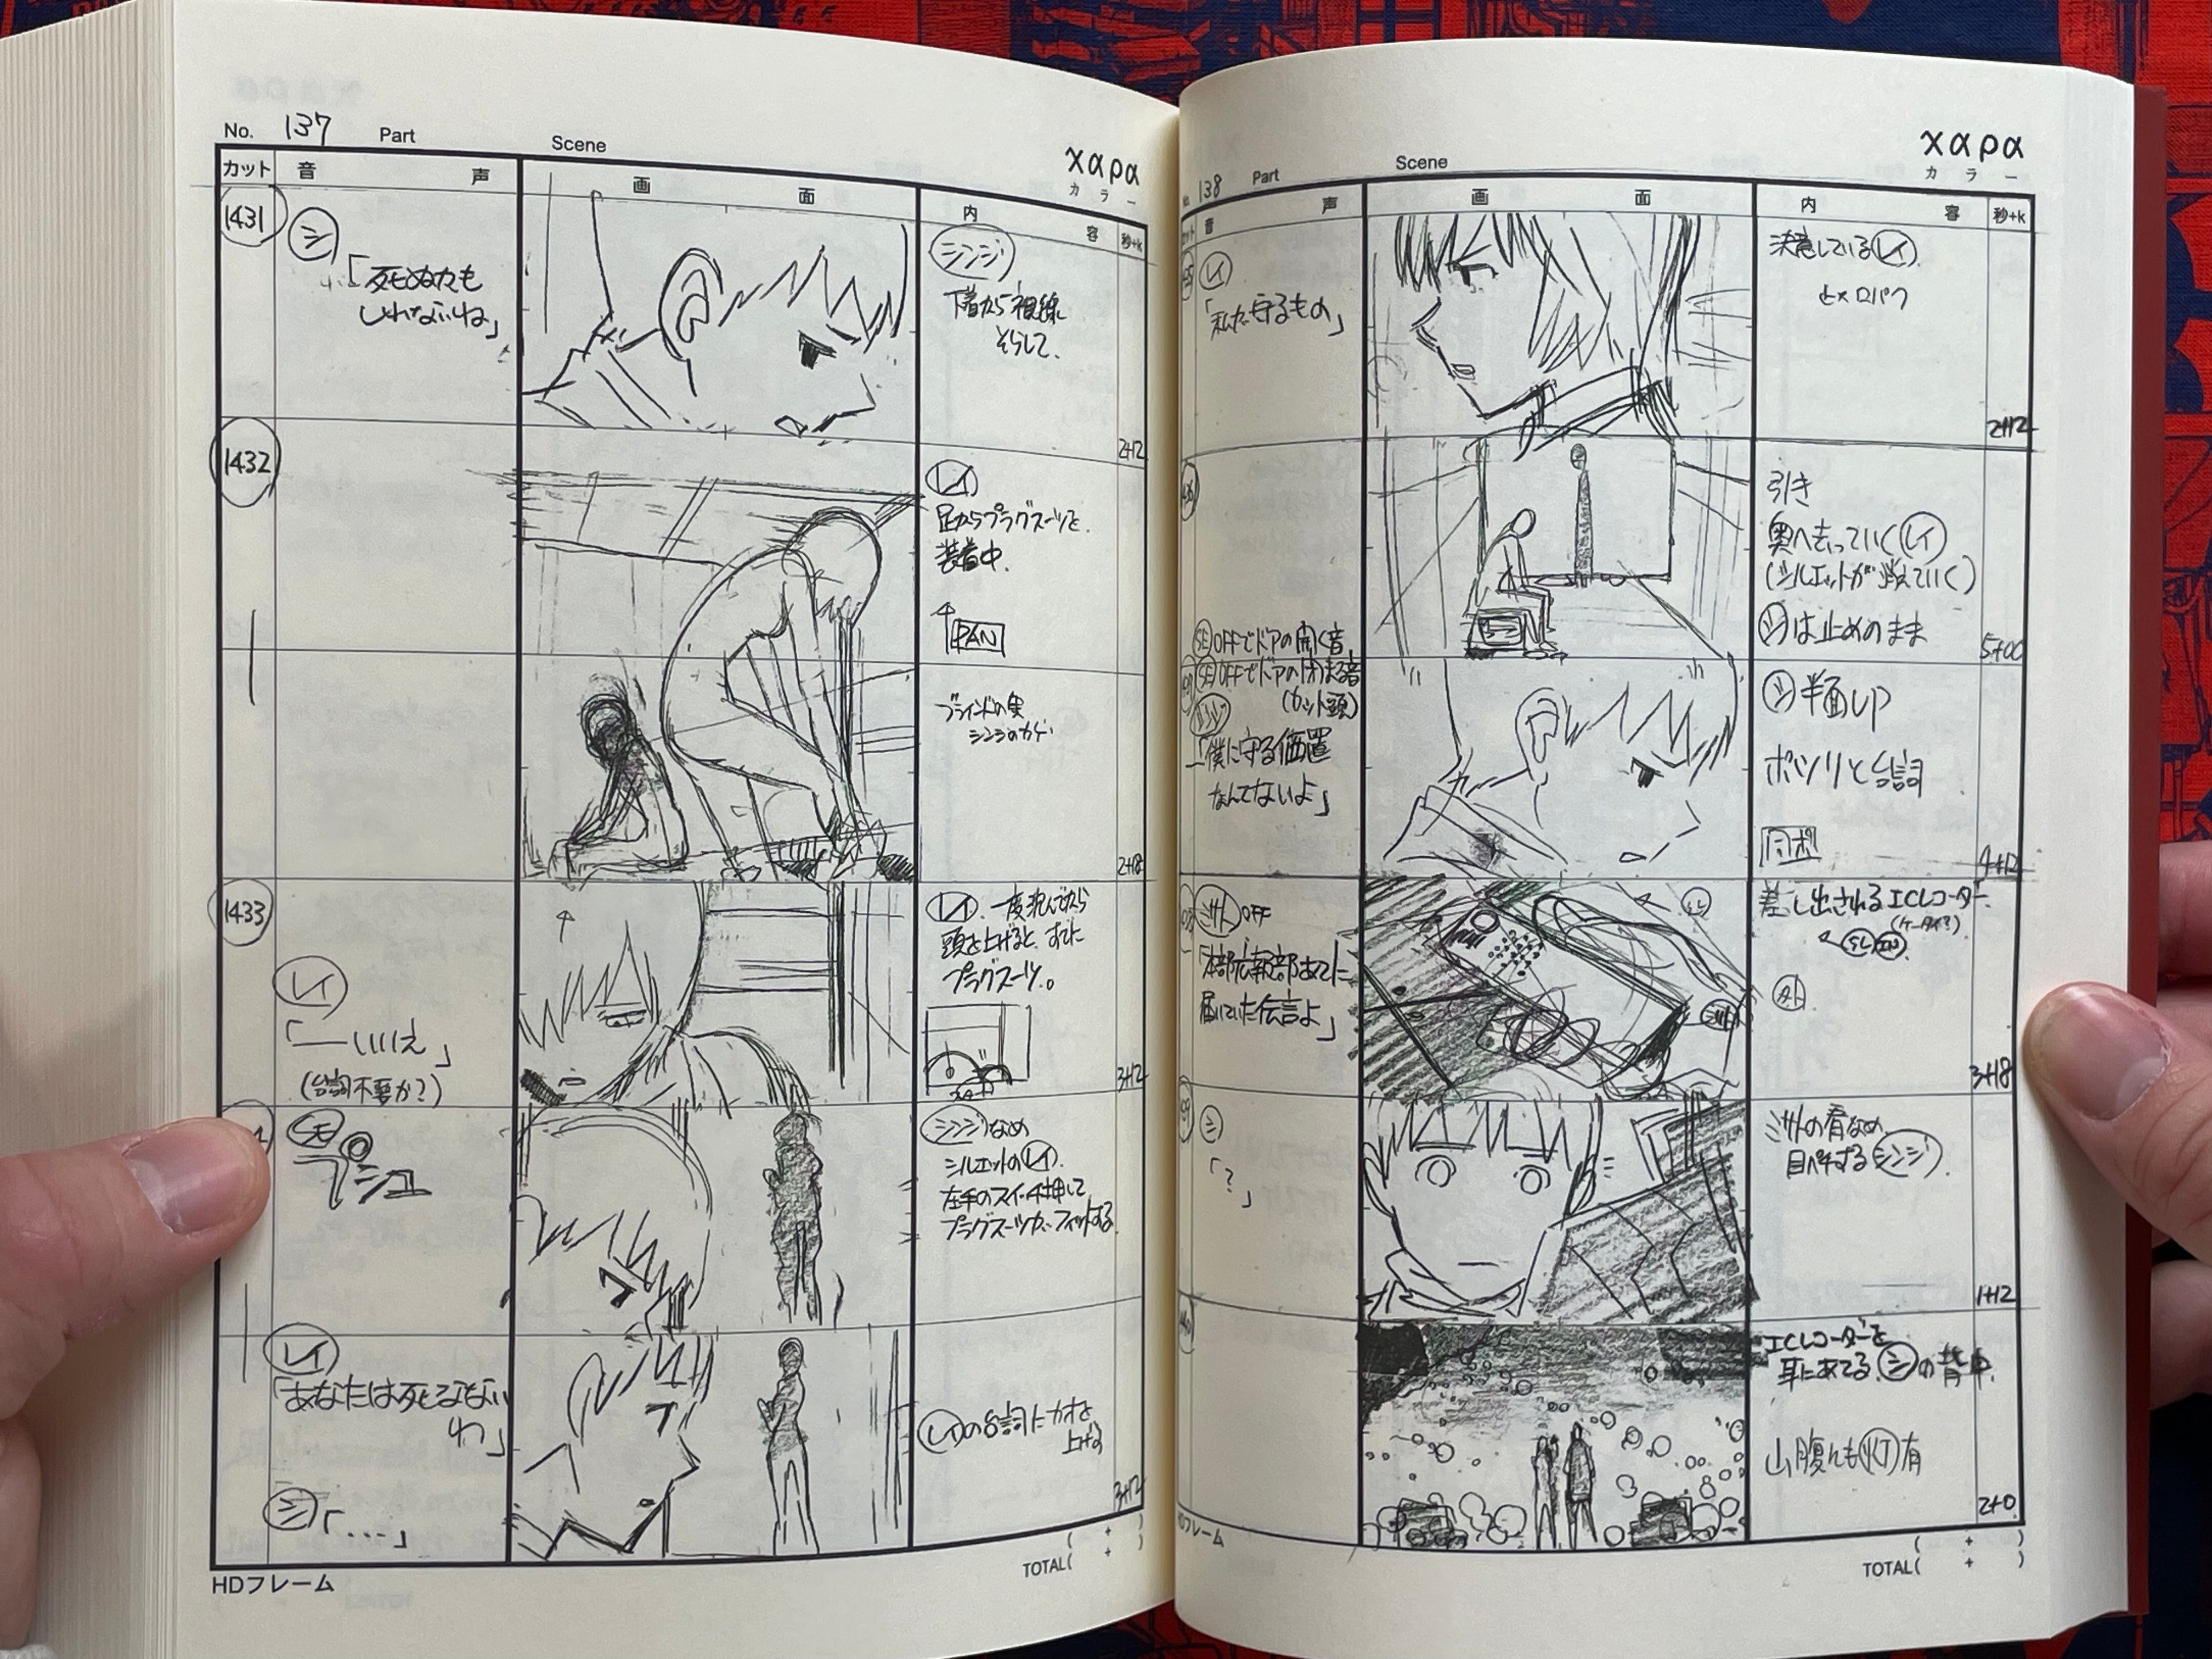 No. 137 Part Scene
χαρα
カラー
カット 音声 画面 内容 秒+k
1431
シ
「死ぬかも
しれないね」
シンジ
下着から視線
そらして.
2+12
1432
レイ
足からプラグスーツを.
装着中.
PAN
ブラインドの実
シンジのカゲ.
2+18
1433
レイ
「——いいえ」
(台詞不要か?)
レイ. 一度沈んでから
頭を上げると、すでに
プラグスーツ。
3+12
プシュ
シンジなめ
シルエットのレイ.
左手のスイッチ押して
プラグスーツがフィットする
レイ
「あなたは死なない
わ」
シ「…」
レイの台詞にカオを
上げる
3+12
HDフレーム
TOTAL( + )
No. 138 Part Scene
χαρα
カラー
音声 画面 内容 秒+k
レイ
「私が守るもの」
決意しているレイ.
止メ口パク
2+12
引き
奥へ去っていくレイ
(シルエットが消えていく)
シは止めのまま
SE OFFでドアの開く音.
5+00
SE OFFでドアの閉まる音
(カット頭)
シンジ
「僕に守る価置
なんてないよ」
シ半面UP
ボソリと台詞
同ポ
4+12
ミサト OFF
「本部広報部あてに
届いていた伝言よ」
差し出されるICレコーダー.
(ケータイ?)
3+18
シ
「?」
ミサトの肩なめ
目パチするシンジ.
1+12
ICレコーダーを
耳にあてるシの背中.
山腹にも灯有
2+0
フレーム
TOTAL( + )